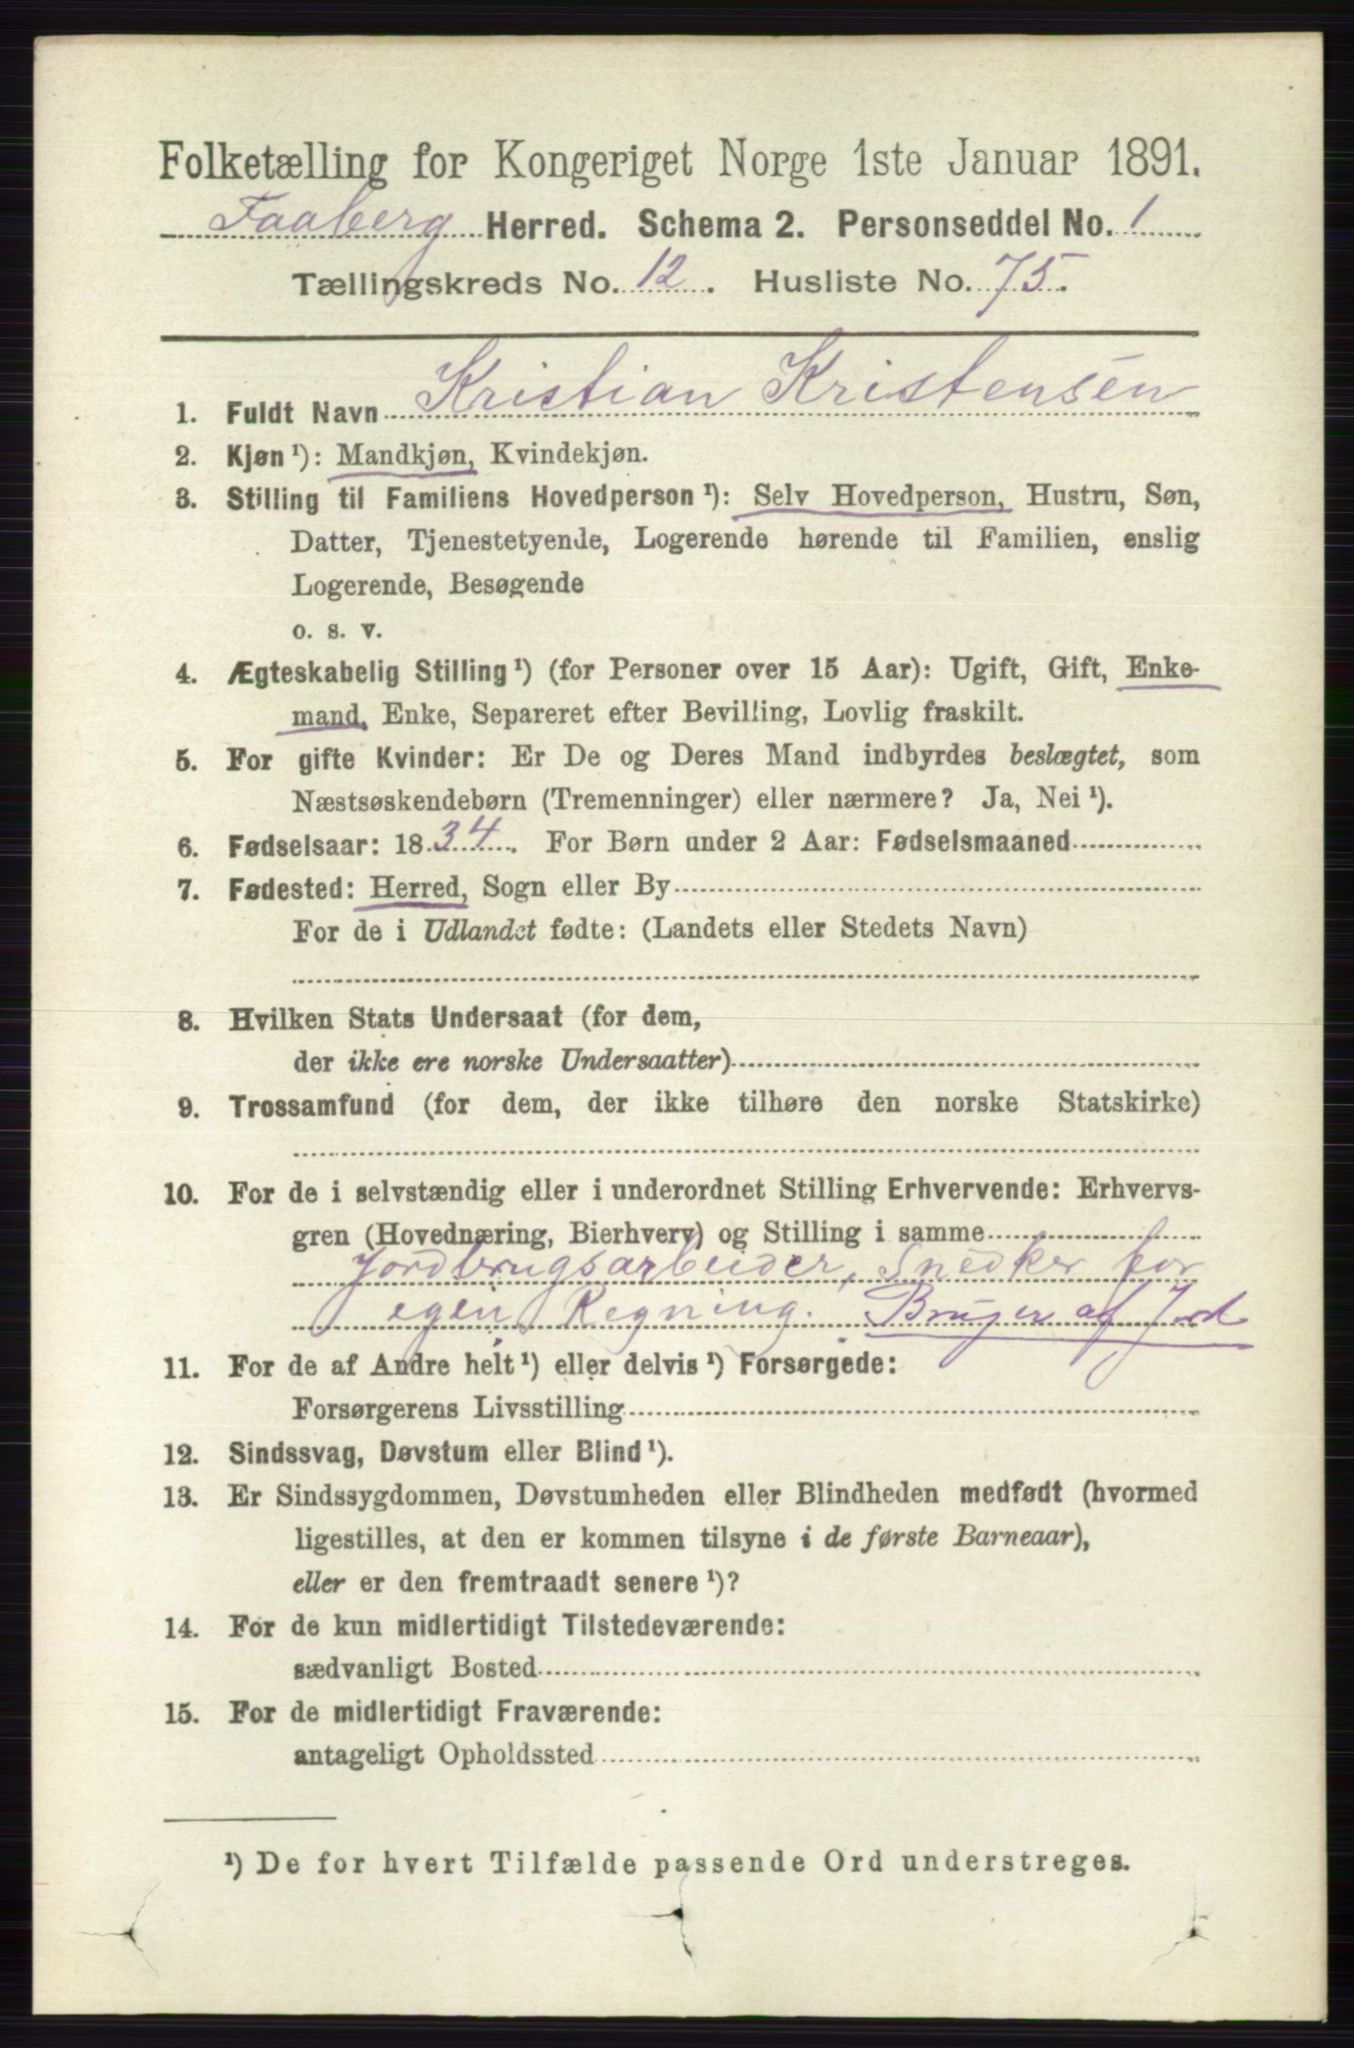 Folketælling for Kongeriget Norge 1ste Januar 1891.
Faaberg Herred. Schema 2. Personseddel No. 1
Tællingskreds No. 12. Husliste No. 75.
1. Fuldt Navn Kristian Kristensen
2. Kjøn ¹): Mandkjøn, Kvindekjøn.
3. Stilling til Familiens Hovedperson ¹): Selv Hovedperson, Hustru, Søn,
Datter, Tjenestetyende, Logerende hørende til Familien, enslig
Logerende, Besøgende
o. s. v.
4. Ægteskabelig Stilling ¹) (for Personer over 15 Aar): Ugift, Gift, Enke-
mand, Enke, Separeret efter Bevilling, Lovlig fraskilt.
5. For gifte Kvinder: Er De og Deres Mand indbyrdes beslægtet, som
Næstsøskendebørn (Tremenninger) eller nærmere? Ja, Nei ¹).
6. Fødselsaar: 1834. For Børn under 2 Aar: Fødselsmaaned
7. Fødested: Herred, Sogn eller By
For de i Udlandet fødte: (Landets eller Stedets Navn)
8. Hvilken Stats Undersaat (for dem,
der ikke ere norske Undersaatter)
9. Trossamfund (for dem, der ikke tilhøre den norske Statskirke)
10. For de i selvstændig eller i underordnet Stilling Erhvervende: Erhvervs-
gren (Hovednæring, Bierhverv) og Stilling i samme
Jordbrugsarbeider, Snedker for
egen Regning. Bruger af Jord
11. For de af Andre helt ¹) eller delvis ¹) Forsørgede:
Forsørgerens Livsstilling
12. Sindssvag, Døvstum eller Blind ¹).
13. Er Sindssygdommen, Døvstumheden eller Blindheden medfødt (hvormed
ligestilles, at den er kommen tilsyne i de første Barneaar),
eller er den fremtraadt senere ¹)?
14. For de kun midlertidigt Tilstedeværende:
sædvanligt Bosted
15. For de midlertidigt Fraværende:
antageligt Opholdssted
¹) De for hvert Tilfælde passende Ord understreges.